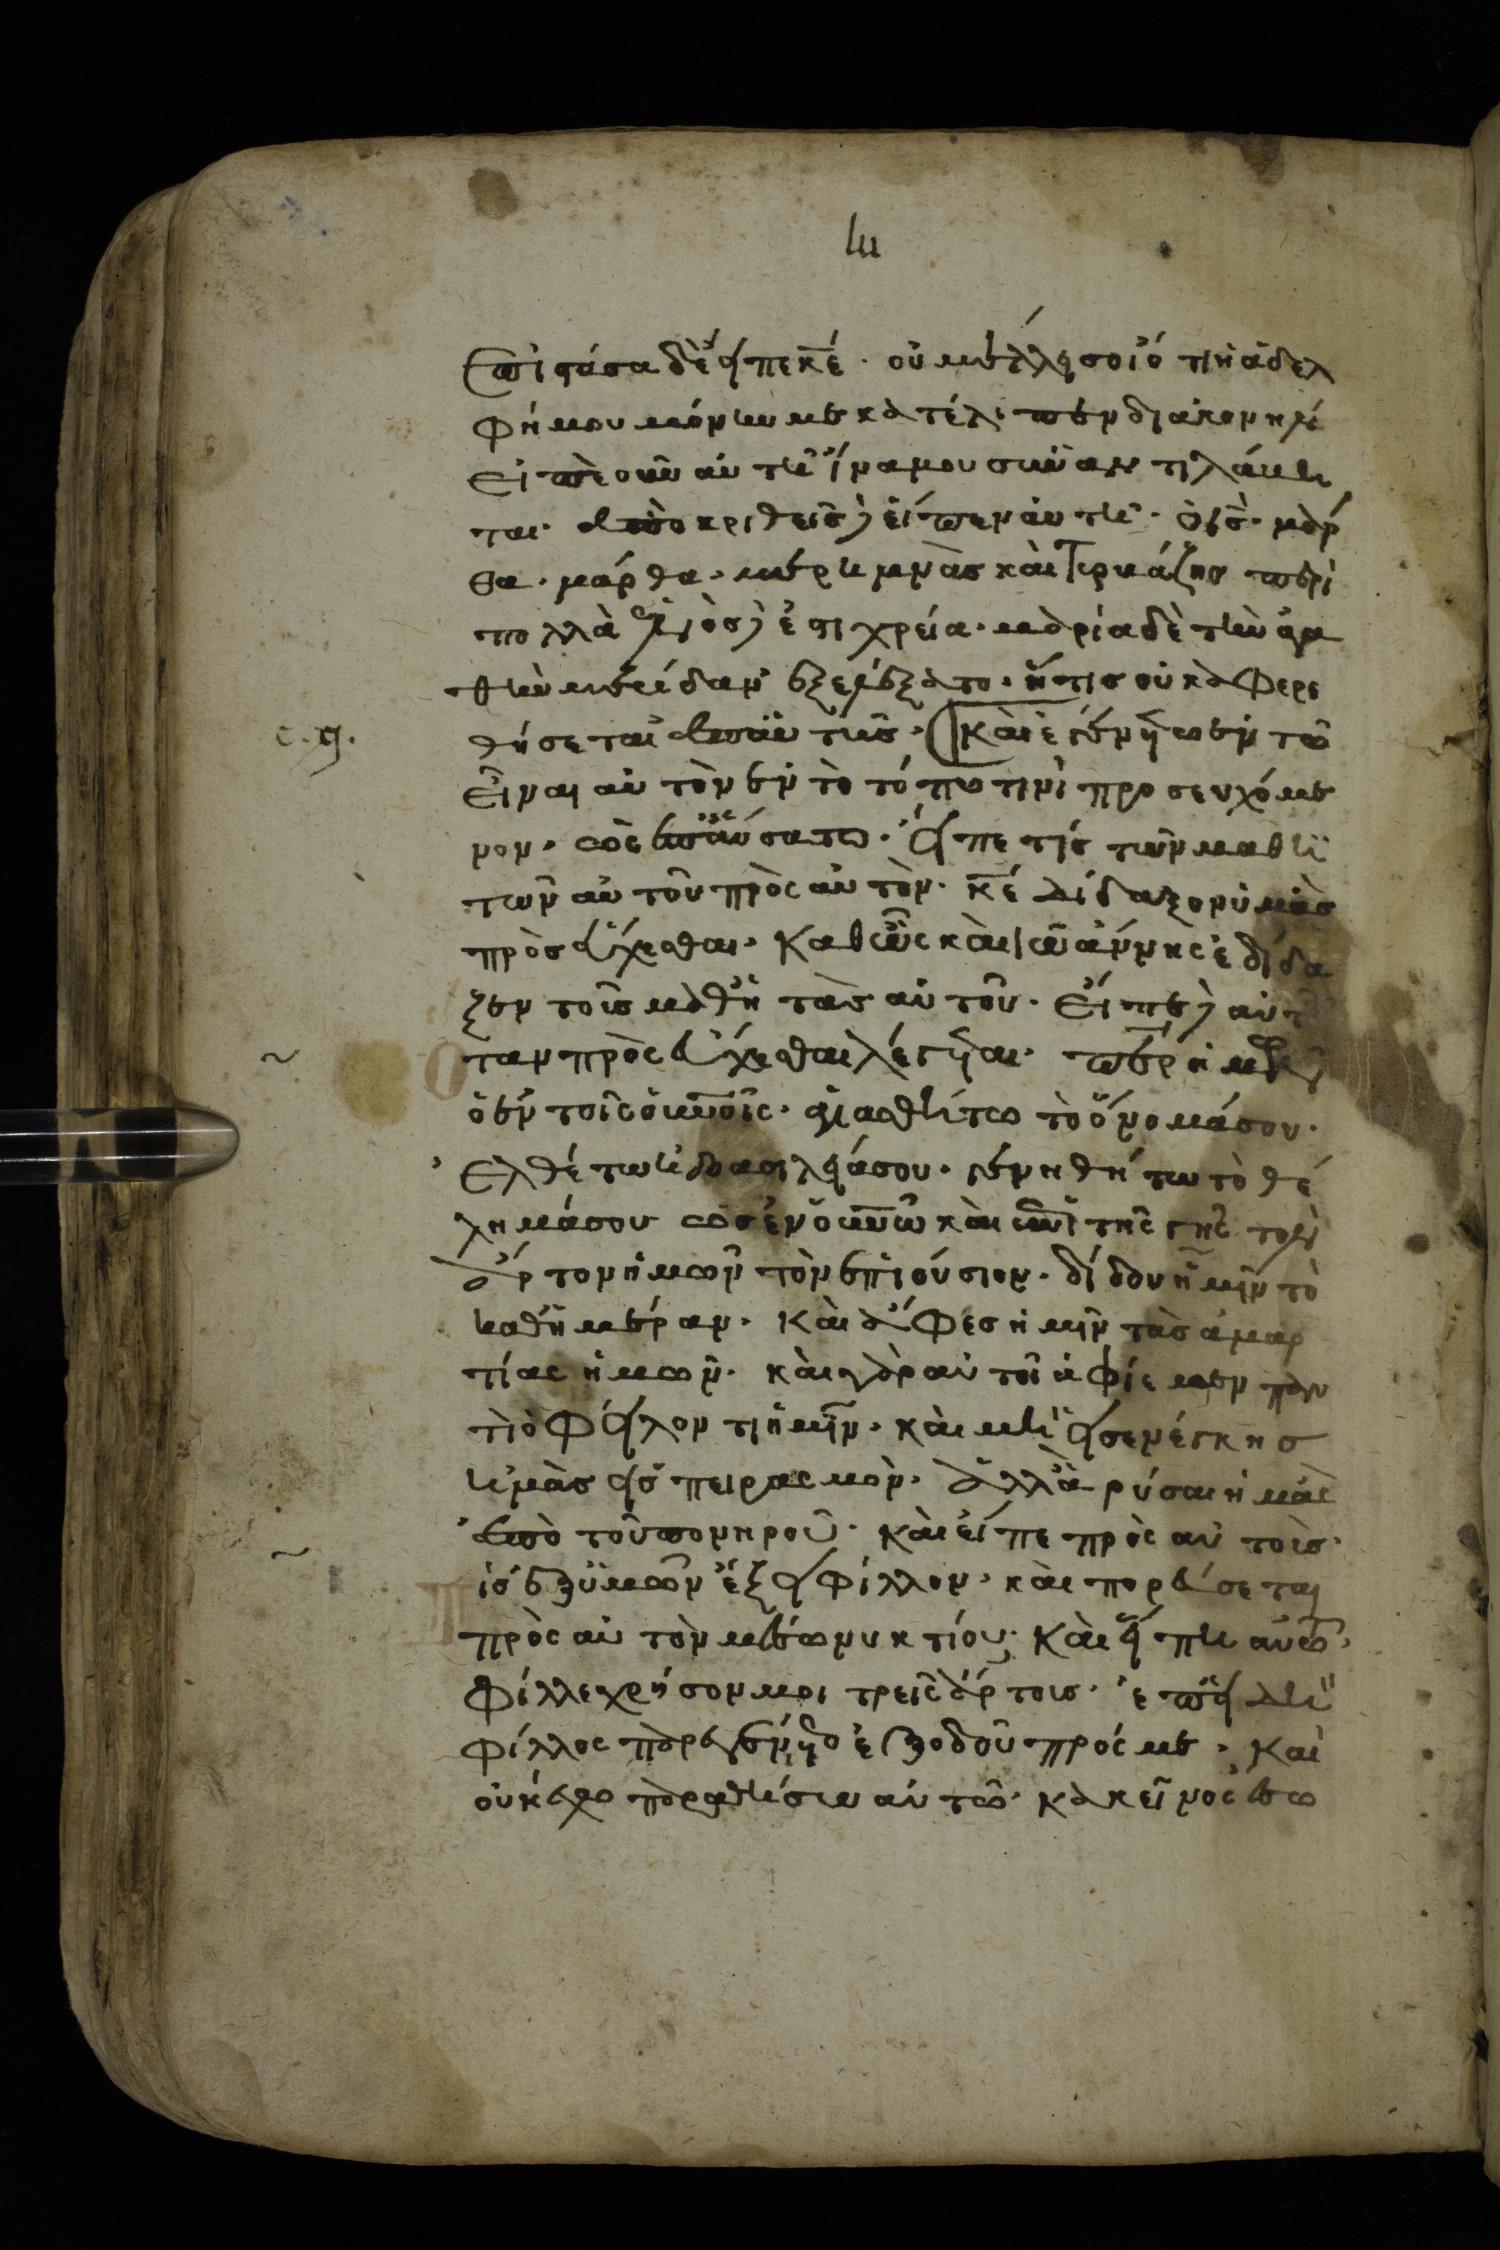 ἐπιστάσα δὲ εἶπε κ̅ε̅. οὐ μέλλει σοι ὅτι ἡ ἀδελ
φή μου μόνην με κατέλιπεν διακονεῖν
εἰπὲ οὖν αὐτῆ ἵνα μου συναντιλάβη
ται. ἀποκριθεὶς δὲ εἶπεν αὐτῆ. ὁ ι̅ς̅. μάρ
θα. μάρθα. μεριμνὰς καὶ τυρβάζης περὶ
πολλὰ ἑνὸς δὲ ἐστι χρεία. μαρία δὲ τὴν ἀγα
θὴν μερίδαν ἐξελέξατο. ἥτις οὐκ ἀφερε
θήσεται ἀπ' αὐτῆς. καὶ ἐγένετο ἐν τῶ
c. g.
εἶναι αὐτὸν ἐν τὸ τόπω τινὶ προσευχόμε
νον. ὡς ἐπαύσατω. εἶπε τίς τῶν μαθη
τῶν αὐτοῦ πρὸς αὐτόν. κ̅ε̅ δίδαξον ἡμὰς
πρὸσεύχεσθαι. καθὼς καὶ ἰωάννης ἐδίδα
ξεν τοὶς μαθητὰς αὐτοῦ. εἶπε δὲ αὐτ
ταν πρὸσεύχεσθαι λέγεται. π̅ε̅ρ ἡμῶν
ὁ ἐν τοῖς οὐνοῖς. ἁγιασθήτω τὸ ὄνομά σου.
ἐλθέτω ἡ βασιλεία σου. γενηθήτω τὸ θέ
λημά σου ὡς ἐν οὐνῶ καὶ ἐπὶ τῆς γῆς τὸν
ἄρτον ἡμῶν τὸν ἐπιούσιον. δίδου ἡμῖν τὸ
καθ' ἡμέραν. καὶ ἄφες ἡμῖν τὰς ἁμαρ
τίας ἡμῶν. καὶ γὰρ αὐτοὶ ἀφίεμεν παν
τὶ ὀφείλοντι ἡμῖν. καὶ μὴ εἰσενέγκης
ἡμὰς εἰς πειρασμόν. ἀλλὰ ρύσαι ἡμὰς
ἀπὸ τοῦ πονηροῦ. καὶ εἶπε πρὸς αὐτοὶς.
ίς ἐξ ὑμῶν ἕξει φίλλον. καὶ πορεύσεται
πρὸς αὐτὸν μεσωνυκτίου. καὶ εἴπη αὐτῶ.
φίλλε χρήσον μοι τρεῖς ἄρτους. ἐπειδὴ
φίλλος παρεγένετο ἐξ ὁδοῦ πρός με. καὶ
οὐκ έχω παραθήσω αὐτῶ. κἀκεῖνος ἔσω